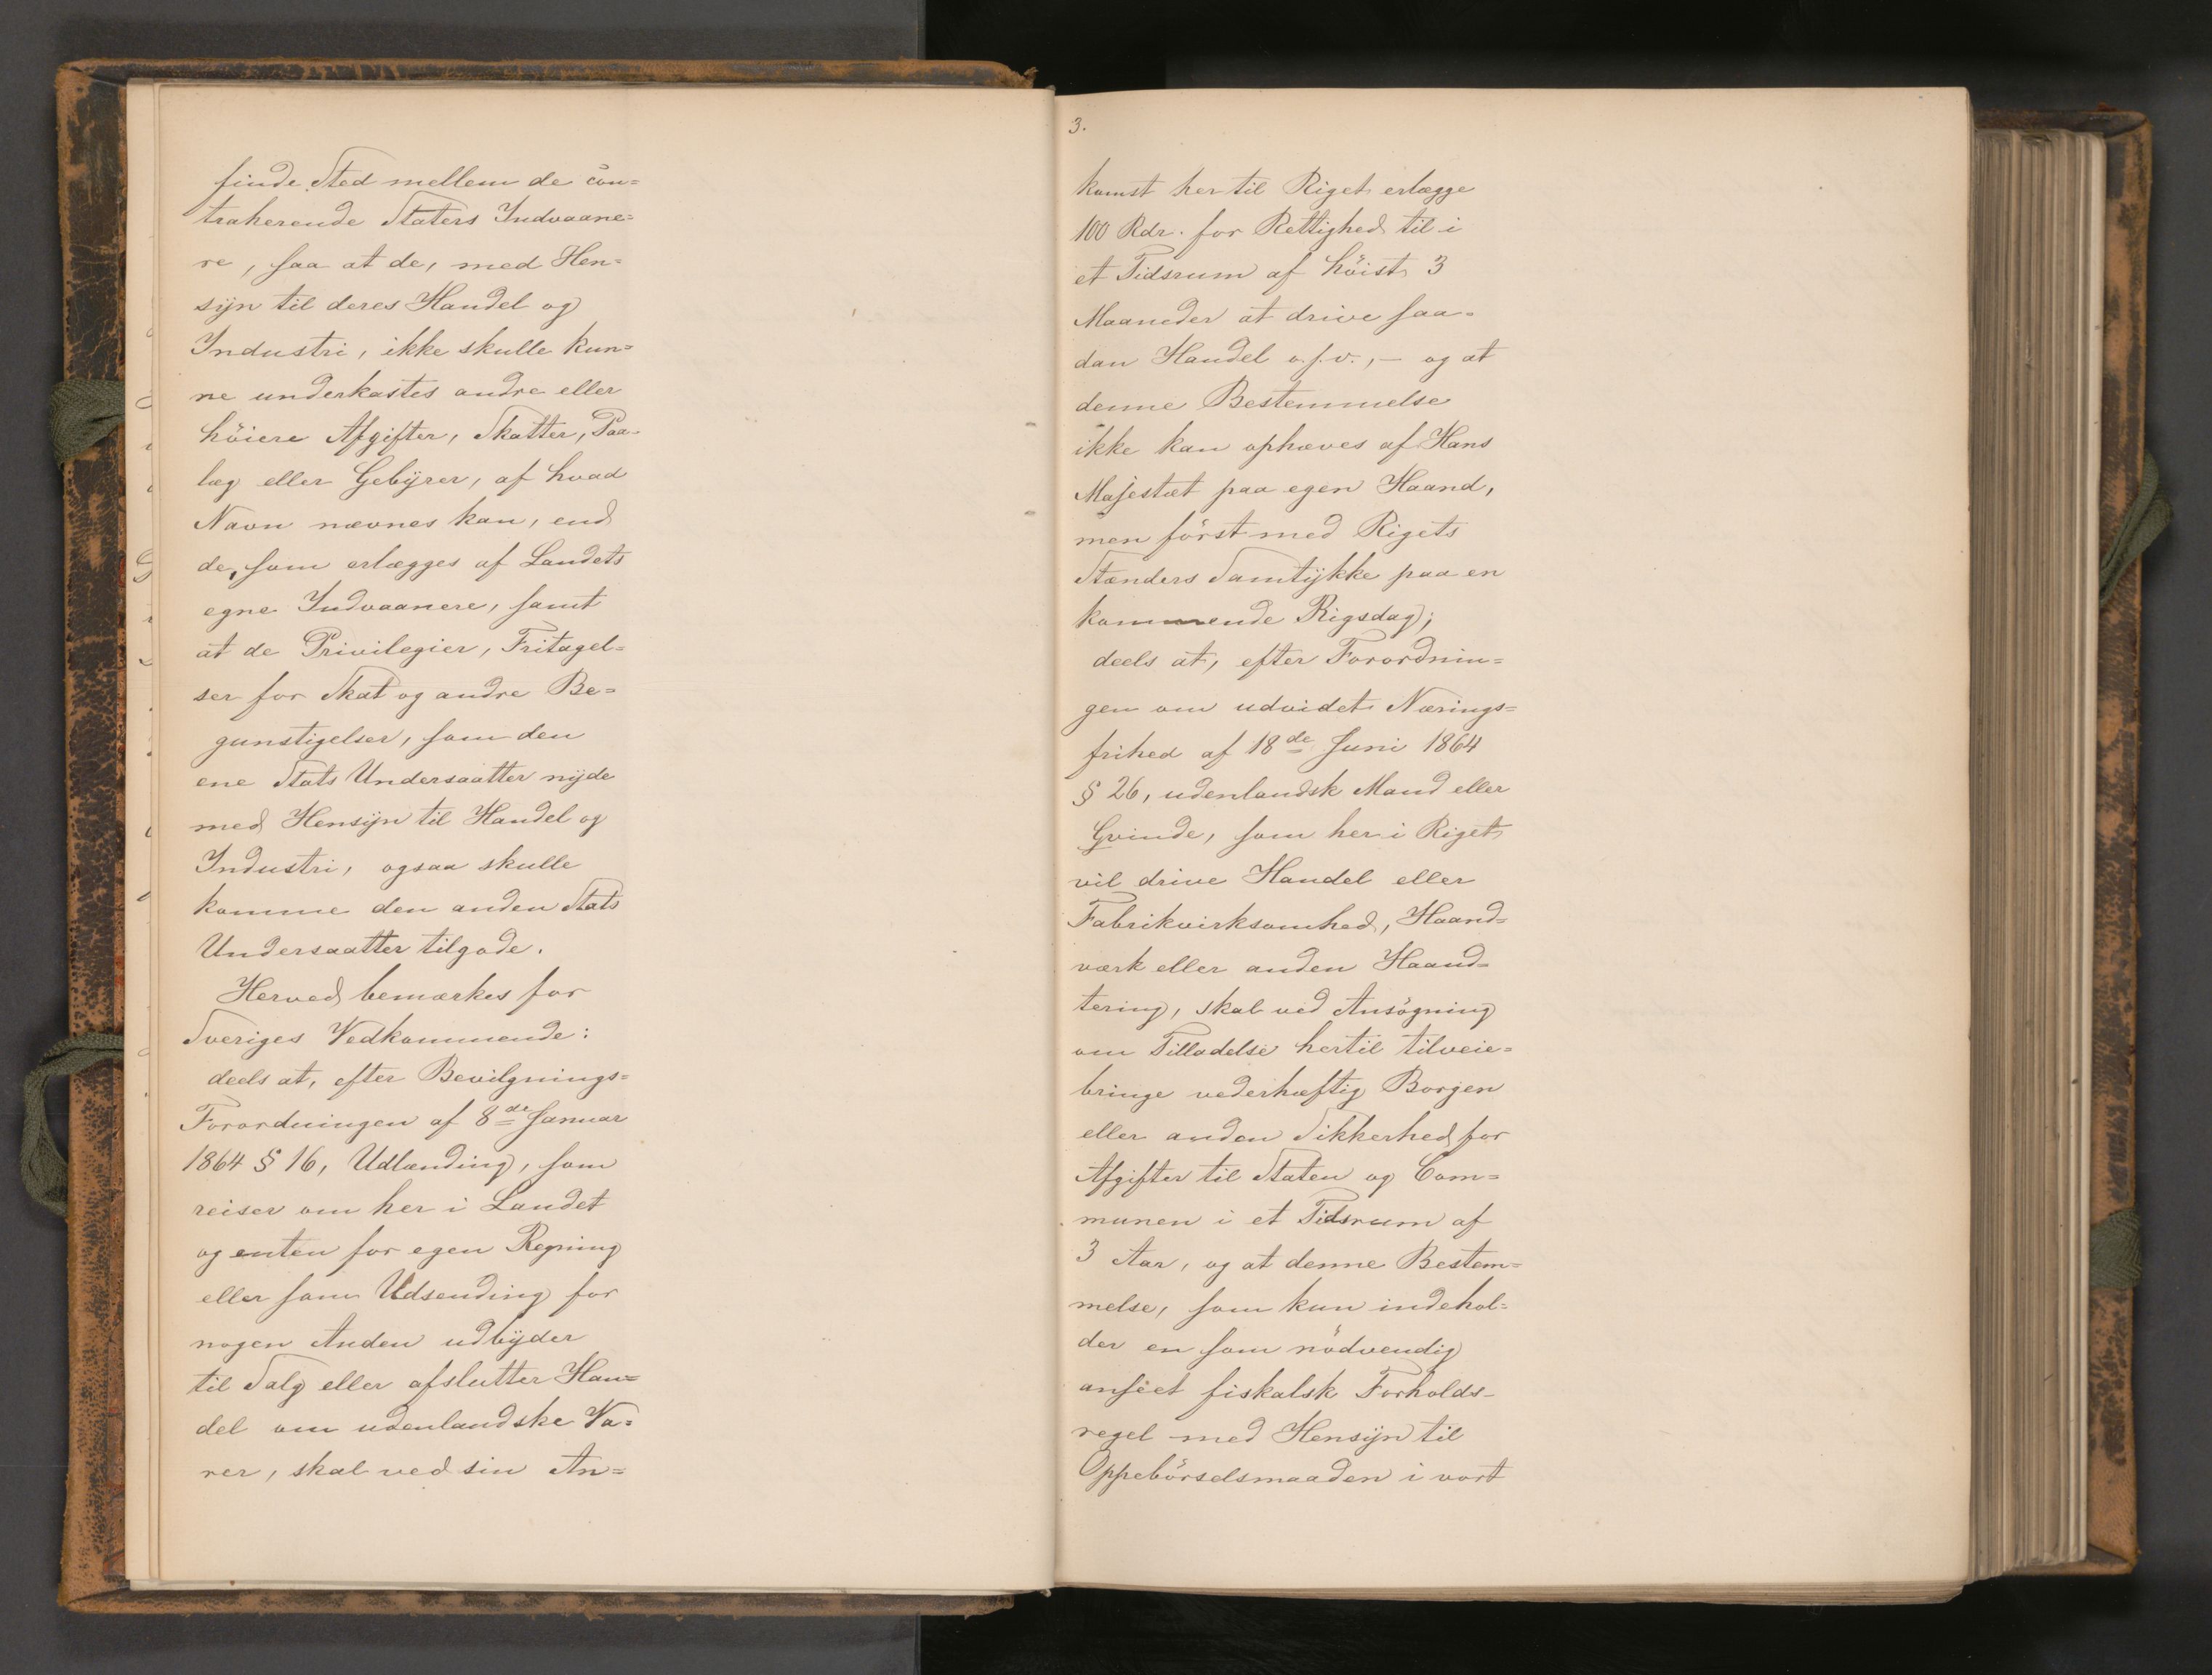 finde Sted mellem de con=
traherende Staters Indvaane=
re, saa at de, med Hen=
sÿn til deres Handel og
Industri, ikke skulle kun=
ne underkastes andre eller
höiere Afgifter, Skatter, Paa=
læg eller Gebÿrer, af hvad
Navn nævnes kan, end
de, som erlægges af Landets
egne Indvaanere, samt
at de Privilegier, Fritagel=
ser for Skat og andre Be=
gunstigelser, som den
ene Stats Undersaatter nÿde
med Hensÿn til Handel og
Industri, ogsaa skulle
komme den anden Stats
Undersaatter tilgode.
Herved bemærkes for
Sveriges Vedkommende:
deels at, efter Bevilgnings=
Forordningen af 8de Januar
1864 § 16, Udlænding, som
reiser om her i Landet
og enten for egen Regning
eller som Udsending for
nogen Anden udbÿder
til Salg eller afslutter Han=
del om udenlandske Va=
rer, skal ved sin An=
3.
komst her til Riget erlægge
100 Rdr. for Rettighed til i
et Tidsrum af höist 3
Maaneder at drive saa=
dan Handel o.s.v., — og at
denne Bestemmelse
ikke kan ophæves af Hans
Majestæt paa egen Haand,
men först med Rigets
Stænders Samtÿkke paa en
kommende Rigsdag;
deels at, efter Forordnin=
gen om udvidet Nærings=
frihed af 18de Juni 1864
§ 26, udenlandsk Mand eller
Qvinde, som her i Riget
vil drive Handel eller
Fabrikvirksomhed, Haand=
værk eller anden Haand=
tering, skal ved Ansögning
om Tilladelse hertil tilveie=
bringe vederhæftig Borgen
eller anden Sikkerhed for
Afgifter til Staten og Com=
munen i et Tidsrum af
3 Aar, og at denne Bestem=
melse, som kun indehol=
der en som nödvendig
anseet fiskalsk Forholds=
regel med Hensÿn til
Oppebörselsmaaden i vort